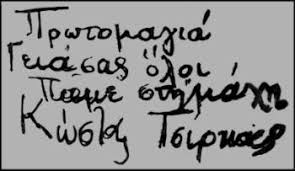 Πρωτομαγιά
Γειάσας όλοι
Πάμε στημάχη
Κώστας Τσίρκας